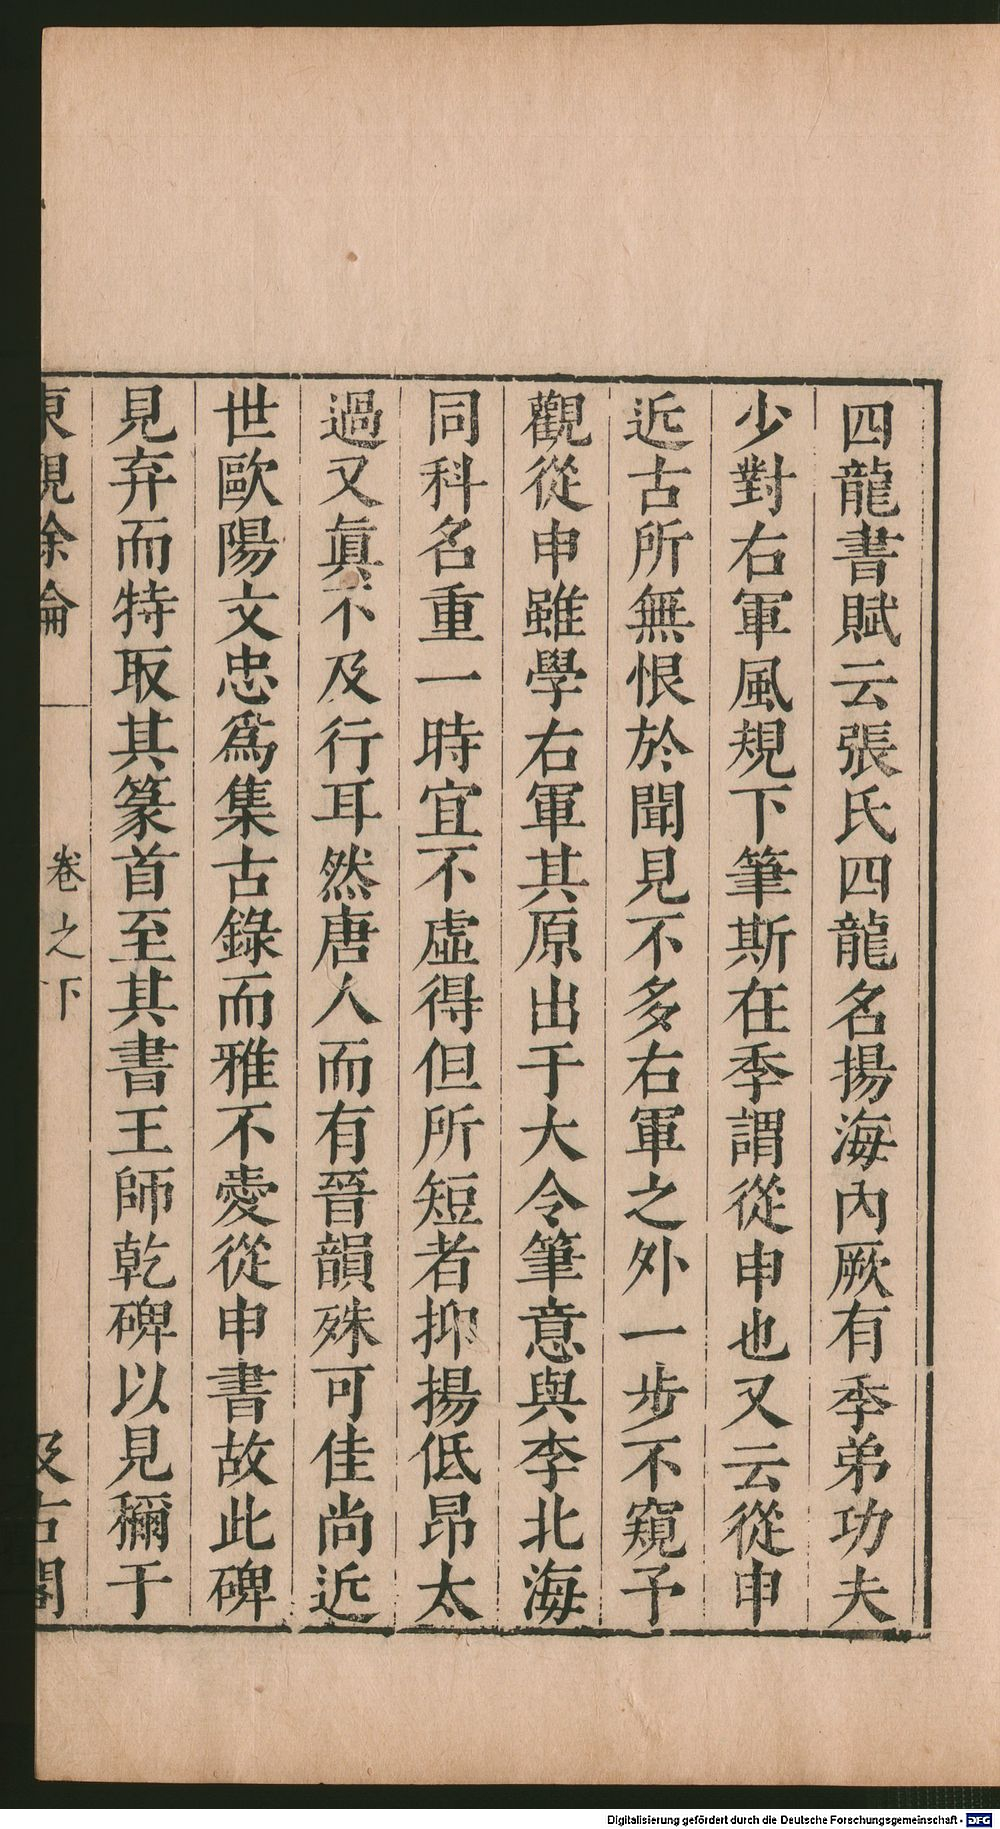 四龍書賦云張氏四龍名揚海內厥有季弟功夫
少對右軍風規下筆斯在季謂從申也又云從申
近古所無恨於聞見不多右軍之外一步不窺予
觀從申雖學右軍其原出于大令筆意與李北海
同科名重一時宜不虛得但所短者抑揚低昂太
過又眞不及行耳然唐人而有晉韻殊可佳尚近
世歐陽文忠爲集古錄而雅不愛從申書故此碑
見弃而特取其篆首至其書王師乾碑以見禰于
東觀餘論 卷之下 汲古閣
Digitalisierung gefördert durch die Deutsche Forschungsgemeinschaft - DFG